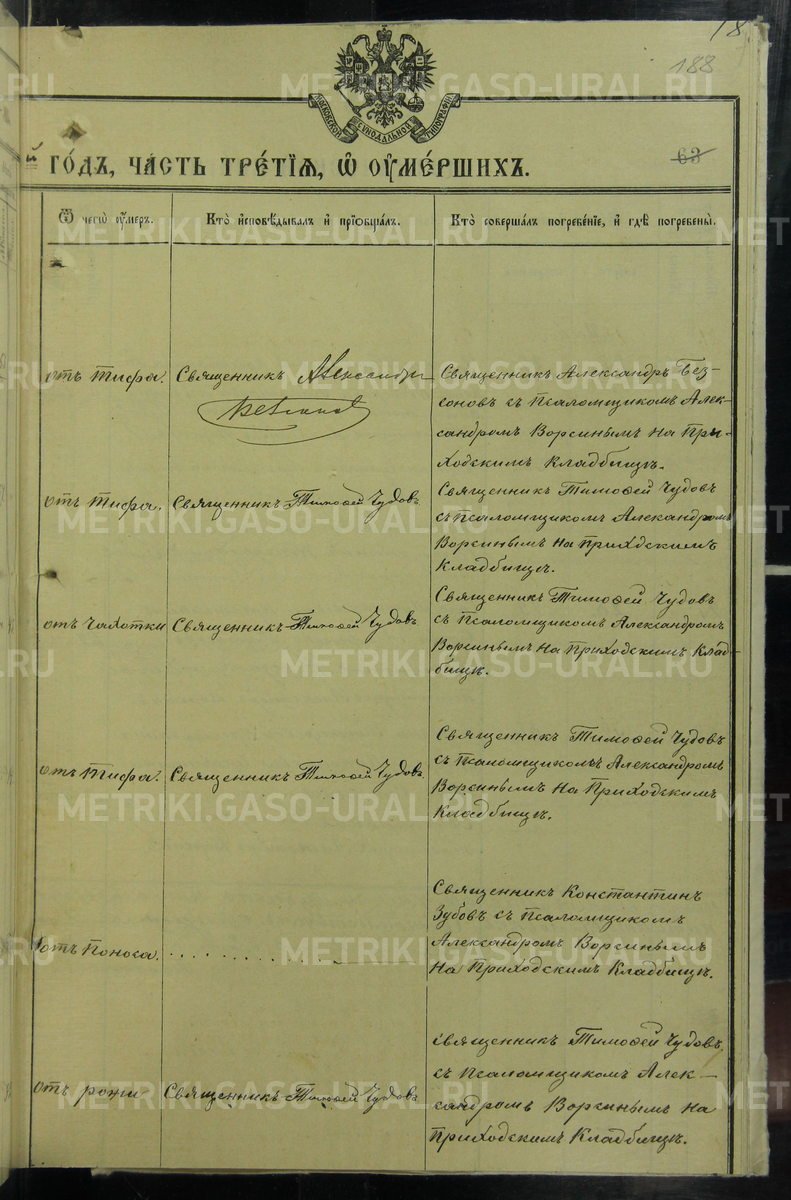 18
188
МОСКОВСКОЙ СУНОДАЛЬНОЙ ТИПОГРАФІИ
63
й го́дъ, ча́сть тре́тїѧ, ѡ҆ оу҆ме́ршихъ.
Ѿ чегѡ̀ оу҆́меръ.
Кто̀ и҆сповѣ́дывалъ и҆ прїобща́лъ.
Кто̀ соверша́лъ погребе́нїе, и҆ гдѣ̀ погребены̀.
отъ тифа.
Священникъ Александръ
Священникъ Александръ Без-
соновъ съ псаломщикомъ Алек-
сандромъ Ворсинымъ на при-
ходскимъ кладбищѣ.
отъ тифа.
Священникъ Тимофей Чудовъ
Священникъ Тимоѳей Чудовъ
съ псаломщикомъ Александромъ
Ворсинымъ на приходскимъ
кладбищѣ.
отъ чахотки
Священникъ Тимоѳей Чудовъ
Священникъ Тимоѳей Чудовъ
съ псаломщикомъ Александромъ
Ворсинымъ на приходскимъ клад-
бищѣ.
отъ тифа.
Священникъ Тимоѳей Чудовъ
Священникъ Тимоѳей Чудовъ
съ псаломщикомъ Александромъ
Ворсинымъ на приходскимъ
кладбищѣ.
отъ поноса.
Священникъ Константинъ
Зубовъ съ псаломщикомъ
Александромъ Ворсинымъ
на приходскимъ кладбищѣ.
отъ рожи
Священникъ Тимоѳей Чудовъ
Священникъ Тимоѳей Чудовъ
съ псаломщикомъ Алек-
сандромъ Ворсинымъ на
приходскимъ кладбищѣ.
METRIKI.GASO-URAL.RU